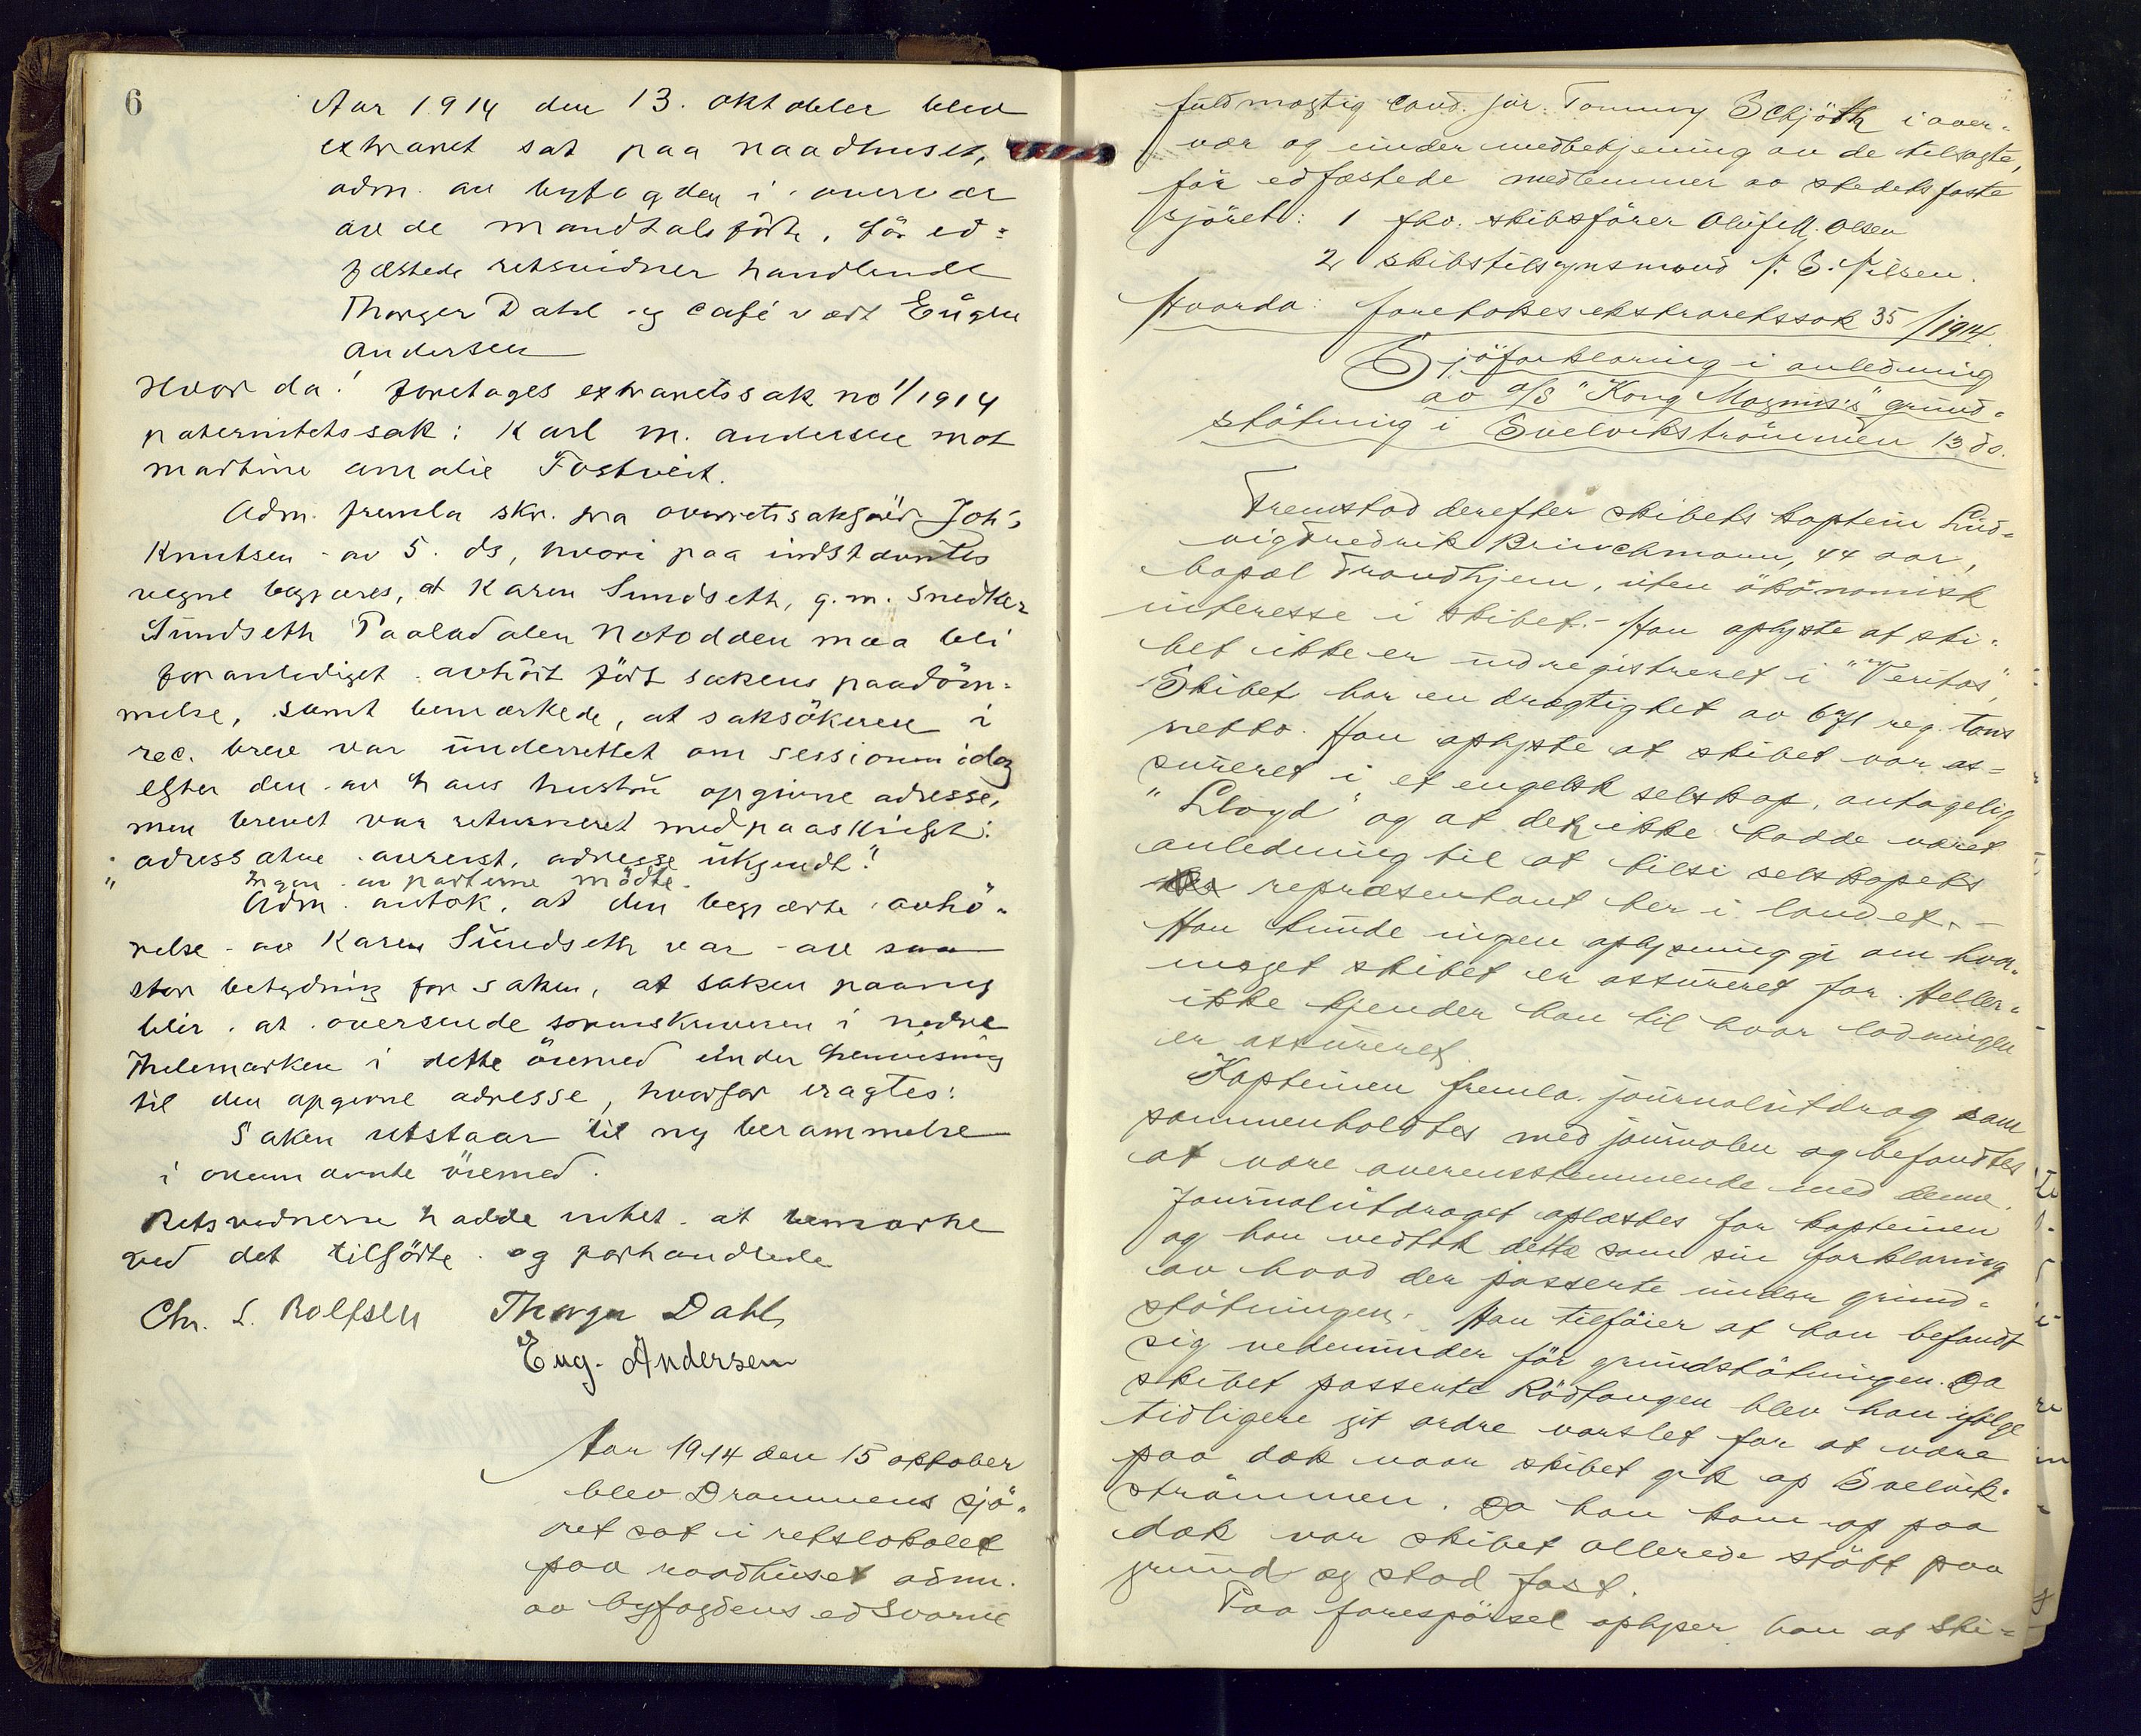 6
Aar 1914 den 13. oktober blev
extraret sat paa raadhuset,
adm. av byfogden i overvær
av de mandtalsförte, för ed-
fæstede retsvidner handlende
Thorger Dahl og cafévært Eugen
Andersen
Hvor da: foretages extraretssak no 1/1914
paternitetssak: Karl M. Andersen mot
Martine Amalie Fostveit.
Adm. fremla skr. fra overretssakförer Joh's
Knutsen av 5. ds, hvori paa indstevntes
vegne begjæres, at Karen Sundseth, g. m. snedker
Sundseth Taaladalen Notodden maa bli
foranlediget avhört fört sakens paadöm-
melse, samt bemerkede, at saksökeren i
rec. brev var underrettet om sessionen idag
efter den av hans hustru opgivne adresse,
men brevet var returneret med paaskrift:
"adressatne avreist, adresse ukjendt".
Ingen av parterne mödte.
Adm. antok, at den begjærte avhö-
relse av Karen Sundseth var av saa
stor betydning for saken, at saken paany
blir at oversende sorenskriveren i nedre
Thelemarken i dette öiemed under henvisning
til den opgivne adresse, hvorfor eragtes:
Saken utstaar til ny berammelse
i ovennævnte öiemed.
Retsvidnerne hadde intet at bemærke
ved det tilförte og forhandlede
Chr. L. Rolfsen Thorger Dahl
Eug. Andersen
Aar 1914 den 15 oktober
blev Drammens sjö-
ret sat i retslokalet
paa raadhuset adm.
av byfogdens edsvorne
fuldmægtig cand. jur. Tommy Schjöth i over-
vær og under medbetjening av de tilsagte,
för edfæstede medlemmer av stedets faste
sjöret: 1 fhv. skibsförer Oluf M. Olsen
2 skibstilsynsmand N. E. Nilsen.
Hvorda: foretokes ekstraretssak 35/1914.
Sjöforklaring i anledning
av D/S "Kong Magnus's" grund-
stötning i Svelvikströmmen 13 ds.
Fremstod derefter skibets kaptein Lud-
vig Fredrik Brinchmann, 44 aar,
bopæl Trondhjem, uten ökonomisk
interesse i skibet. - Han oplyste at ski-
bet ikke er indregistreret i "Veritas",
Skibet har en drægtighet av 671 reg. tons
netto. Han oplyste at skibet var as-
sureret i et engelsk selskap, antagelig
"Lloyd" og at det ikke hadde været
anledning til at tilsi selskapets
repræsentant her i landet. -
Han kunde ingen oplysning gi om hvor-
meget skibet er assureret for. Heller-
ikke kjender han til hvor ladningen
er assureret.
Kapteinen fremla journalutdrag som
sammenholdtes med journalen og befandtes
at være overensstemmende med denne.
Journalutdraget oplæstes for kapteinen
og han vedtok dette som sin forklaring
av hvad der passerte under grund-
stötningen. Han tilföier at han befandt
sig nedenunder för grundstötningen. Da
skibet passerte Rödtangen blev han ifölge
tidligere git ordre varslet for at være
paa dæk naar skibet gik op Svelvik-
strömmen. Da han kom op paa
dæk var skibet allerede stött paa
grund og stod fast.
Paa forespörsel oplyser han at ski-